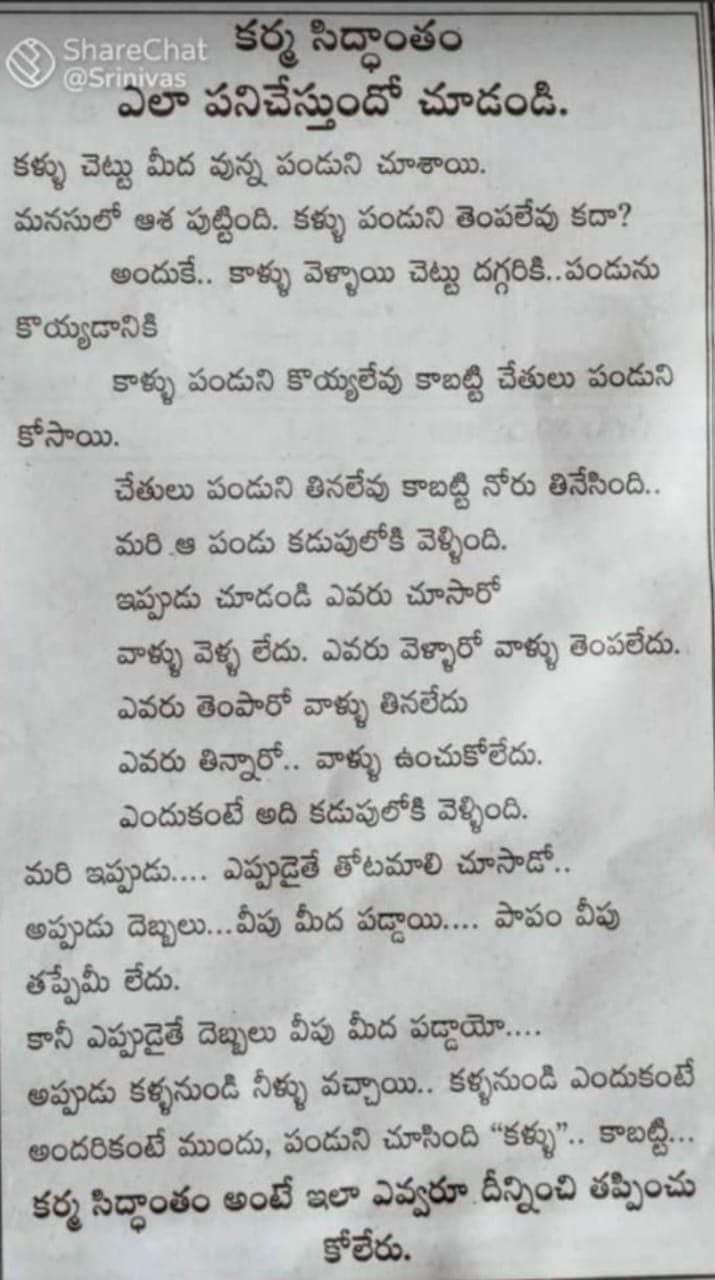 ShareChat
@Srinivas
కర్మ సిద్ధాంతం
ఎలా పనిచేస్తుందో చూడండి.
కళ్ళు చెట్టు మీద వున్న పండుని చూశాయి.
మనసులో ఆశ పుట్టింది. కళ్ళు పండుని తెంపలేవు కదా?
అందుకే.. కాళ్ళు వెళ్ళాయి చెట్టు దగ్గరికి..పండును
కొయ్యడానికి
కాళ్ళు పండుని కొయ్యలేవు కాబట్టి చేతులు పండుని
కోసాయి.
చేతులు పండుని తినలేవు కాబట్టి నోరు తినేసింది..
మరి ఆ పండు కడుపులోకి వెళ్ళింది.
ఇప్పుడు చూడండి ఎవరు చూసారో
వాళ్ళు వెళ్ళ లేదు. ఎవరు వెళ్ళారో వాళ్ళు తెంపలేదు.
ఎవరు తెంపారో వాళ్ళు తినలేదు
ఎవరు తిన్నారో.. వాళ్ళు ఉంచుకోలేదు.
ఎందుకంటే అది కడుపులోకి వెళ్ళింది.
మరి ఇప్పుడు.... ఎప్పుడైతే తోటమాలి చూసాడో..
అప్పుడు దెబ్బలు...వీపు మీద పడ్డాయి.... పాపం వీపు
తప్పేమీ లేదు.
కానీ ఎప్పుడైతే దెబ్బలు వీపు మీద పడ్డాయో....
అప్పుడు కళ్ళనుండి నీళ్ళు వచ్చాయి.. కళ్ళనుండి ఎందుకంటే
అందరికంటే ముందు, పండుని చూసింది “కళ్ళు”.. కాబట్టి...
కర్మ సిద్ధాంతం అంటే ఇలా ఎవ్వరూ దీన్నించి తప్పించు
కోలేరు.